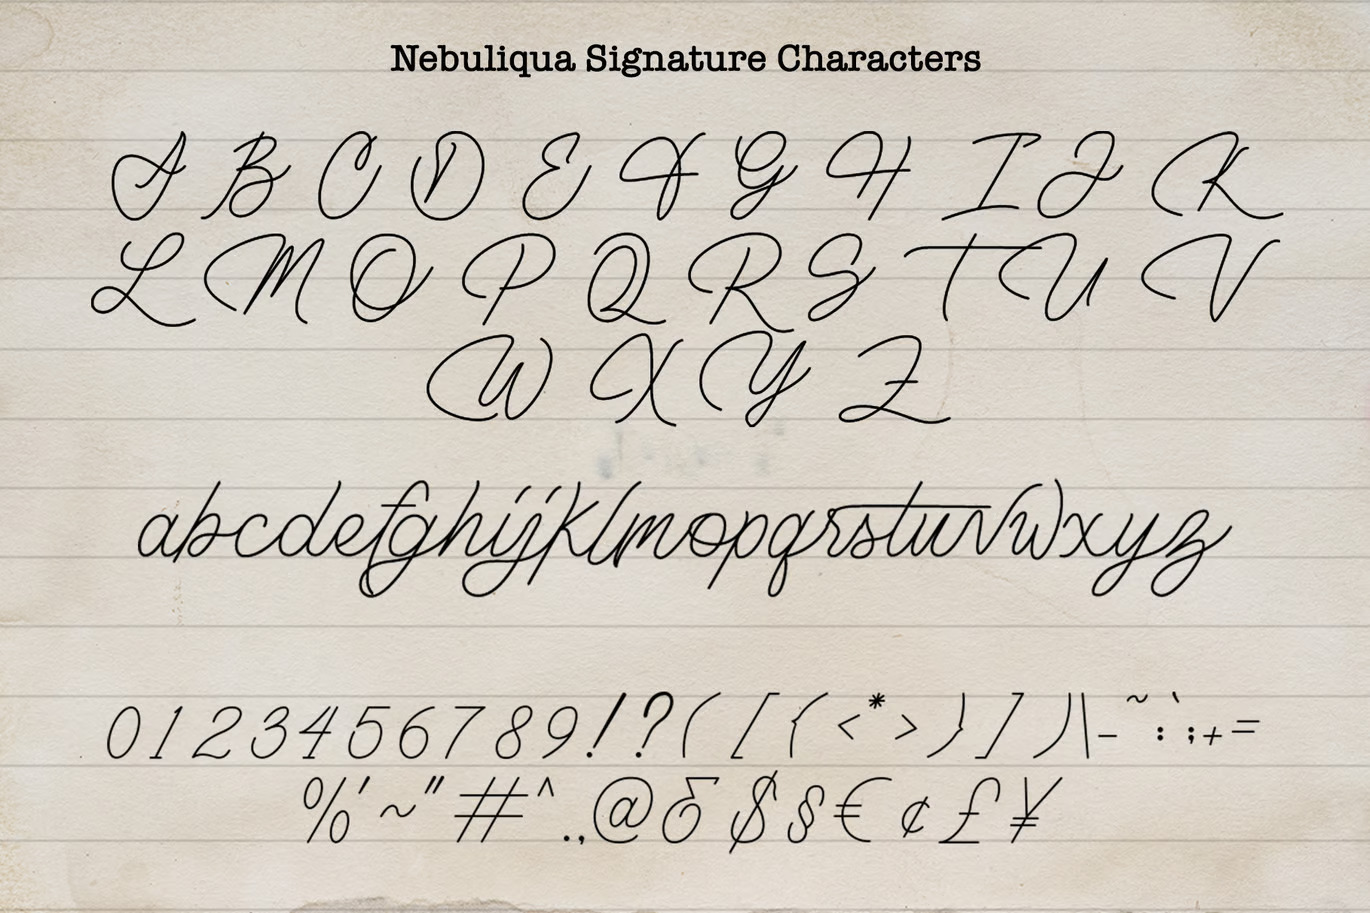 Nebuliqua Signature Characters
A B C D E F G H I J K
L M O P Q R S T U V
W X Y Z
abcdefghijklmopqrstuvwxyz
0123456789!?([{<*>}])\-~`:;+=
%'~"#^.,@δ$§€¢£¥